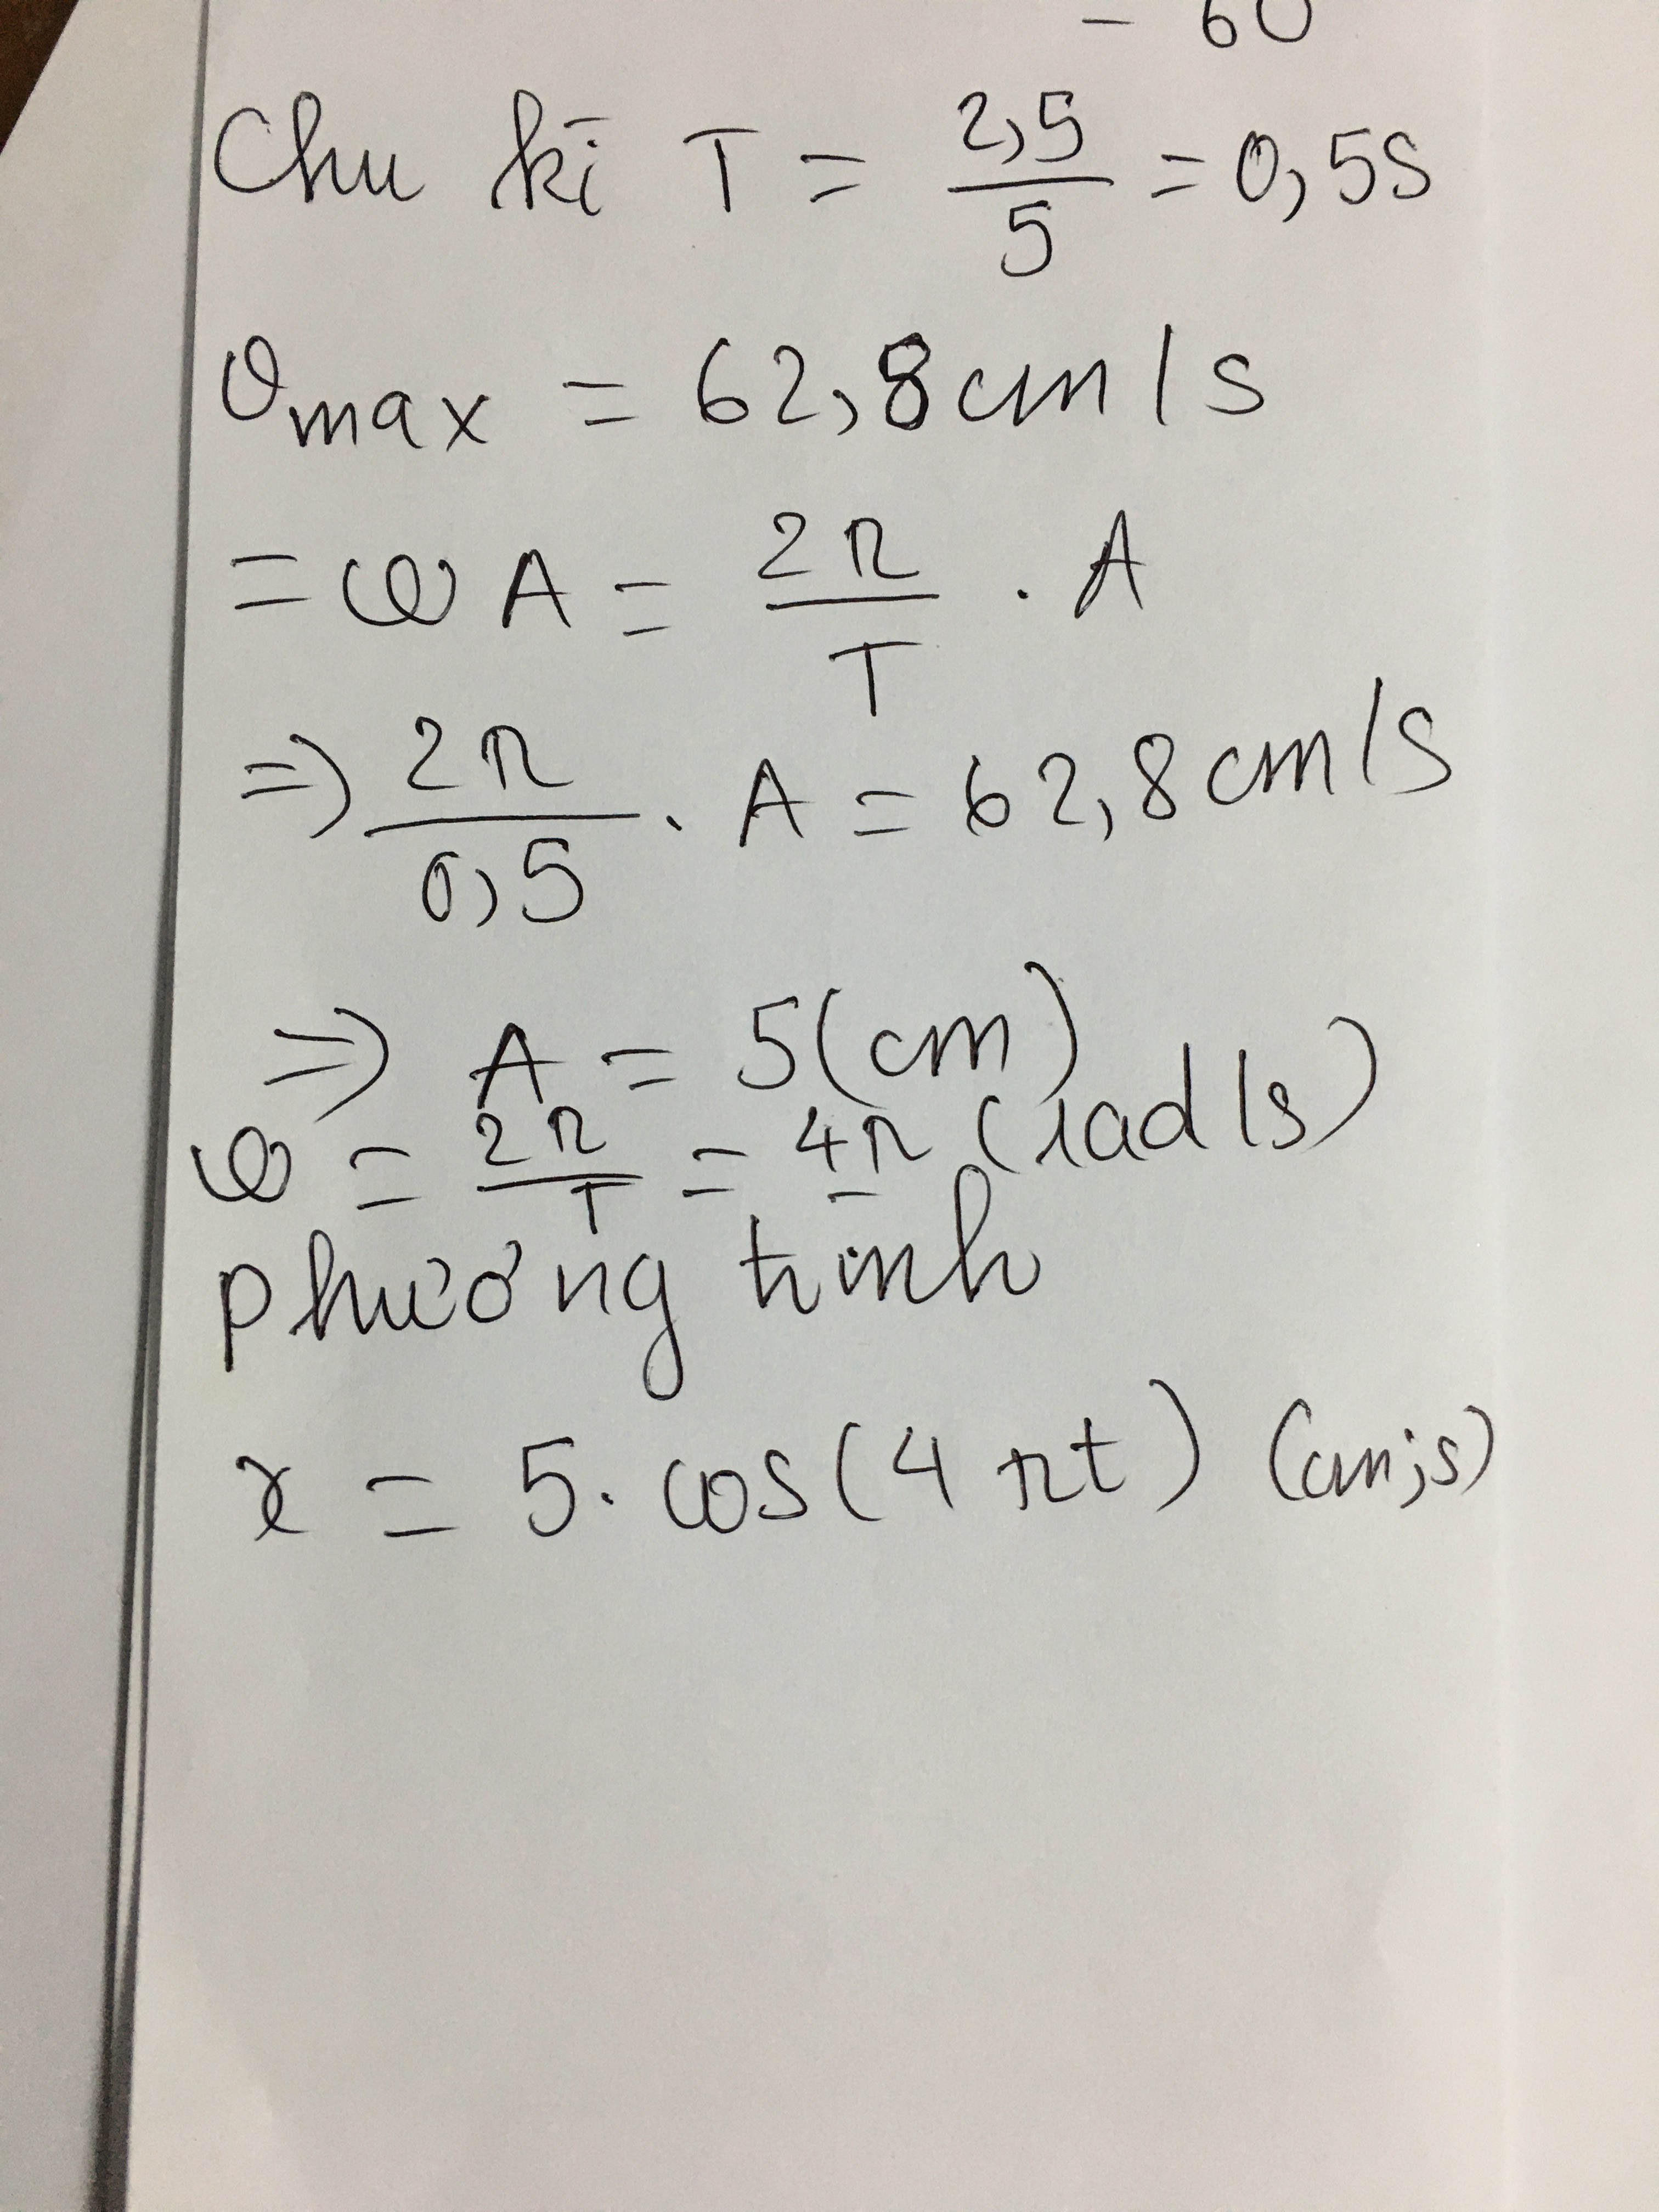 - 60
Chu kì T = 2,5/5 = 0,5s
vmax = 62,8cm/s
= ωA = 2π/T . A
=> 2π/0,5 . A = 62,8cm/s
=> A = 5(cm)
ω = 2π/T = 4π (rad/s)
phương trình
x = 5. cos(4πt) (cm;s)